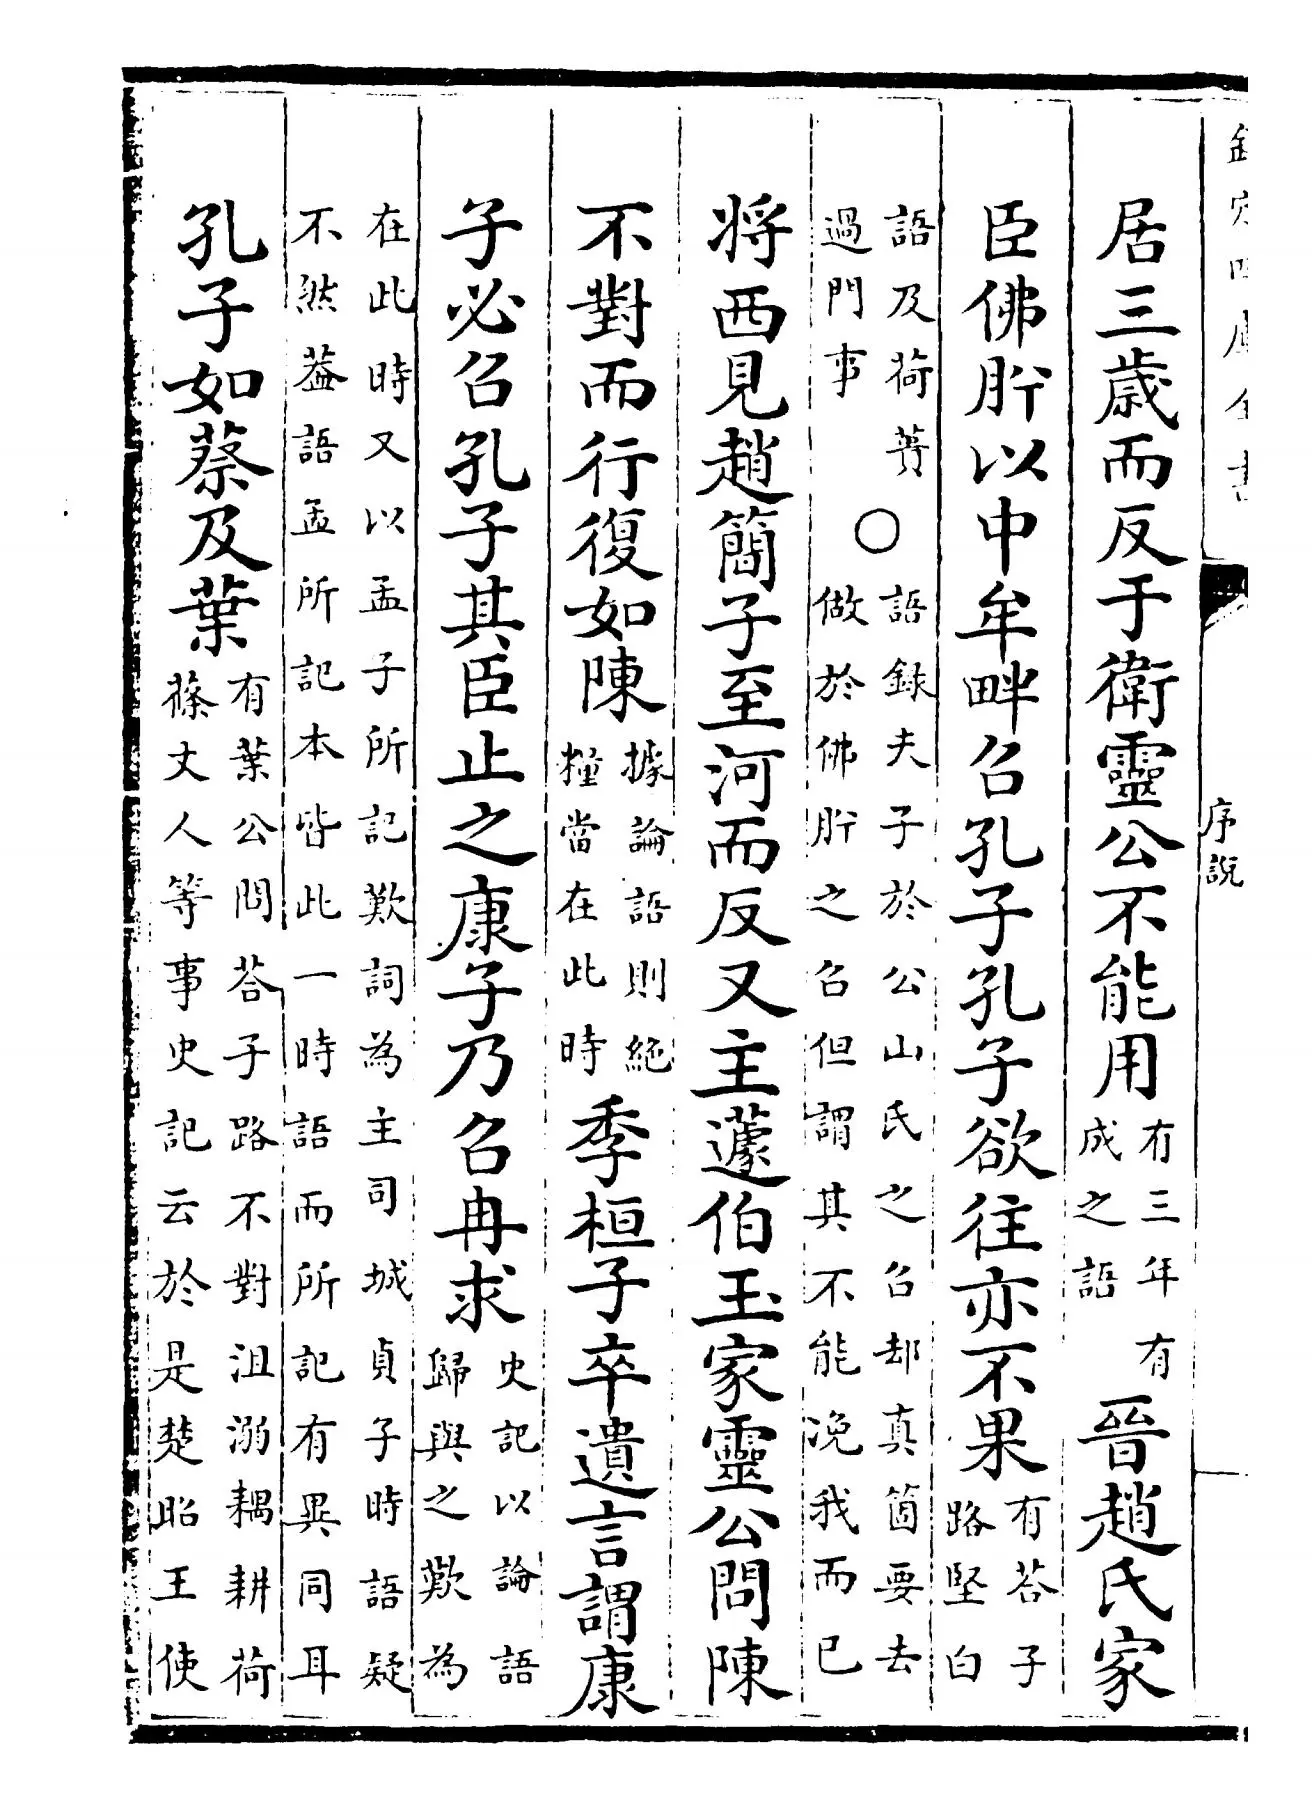 欽定四庫全書
序說
居三歲而反于衛靈公不能用有三年有成之語晉趙氏家
臣佛肸以中牟畔召孔子孔子欲往亦不果有荅子路堅白
語及荷蕢過門事〇語錄夫子於公山氏之召却真箇要去做於佛肸之召但謂其不能凂我而已
將西見趙簡子至河而反又主蘧伯玉家靈公問陳
不對而行復如陳據論語則絶糧當在此時季桓子卒遺言謂康
子必召孔子其臣止之康子乃召冉求史記以論語歸與之歎為
在此時又以孟子所記歎詞為主司城貞子時語疑不然葢語孟所記本皆此一時語而所記有異同耳
孔子如蔡及葉有葉公問荅子路不對沮溺耦耕荷蓧丈人等事史記云於是楚昭王使